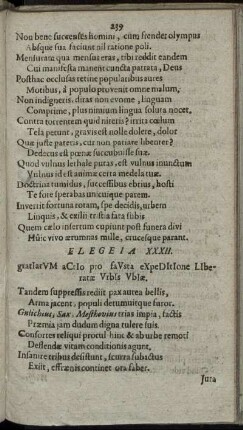 239
Non bene succenses homini, cùm splendet olympus
Absque sua faciunt nil ratione poli.
Mensuratæ qua mensus eras, tibi reddit eandem
Cui manifesta manent cuncta patrata, Deus
Posthac occlusas retine popularibus aures
Motibus, à populo provenit omne malum,
Non indigneris, ditas non evome, linguam
Comprime, plus nimium lingua soluta nocet.
Contra torrentem quid niteris? irrita cœlum
Tela petunt, gravis est nolle dolere, dolor
Quæ juste pateris, cur non patiare libenter?
Dedecus est pœnæ succubuisse suæ.
Quod vulnus lethale putas, est vulnus inunctum
Vulnus id est animæ certa medela tuæ.
Doctrina tumidus, successibus ebrius, hosti
Te sine sperabas unicuique parem.
Invertit fortuna rotam, spe decidis, urbem
Linquis, & exilii tristia fata subis
Quem cælo infertum cupiunt post funera divi
Huic vivo ærumnas mille, crucesque parant.
ELEGEIA XXXII.
gratIarVM aCtIo pro faVsta eXpeDItIone LIbe-
ratæ VrbIs VbIæ.
Tandem suppressis rediit pax aurea bellis,
Arma jacent, populi detumuitque furor.
Gulichius, Sax. Moschovius trias impia, factis
Præmia jam dudum digna tulere suis.
Consortes reliqui procul hinc & ab urbe remoti
Deflendæ vitam conditionis agunt.
Insanire tribus desistunt, scurra subactus
Exiit, effrænis continet ora faber.
Jura